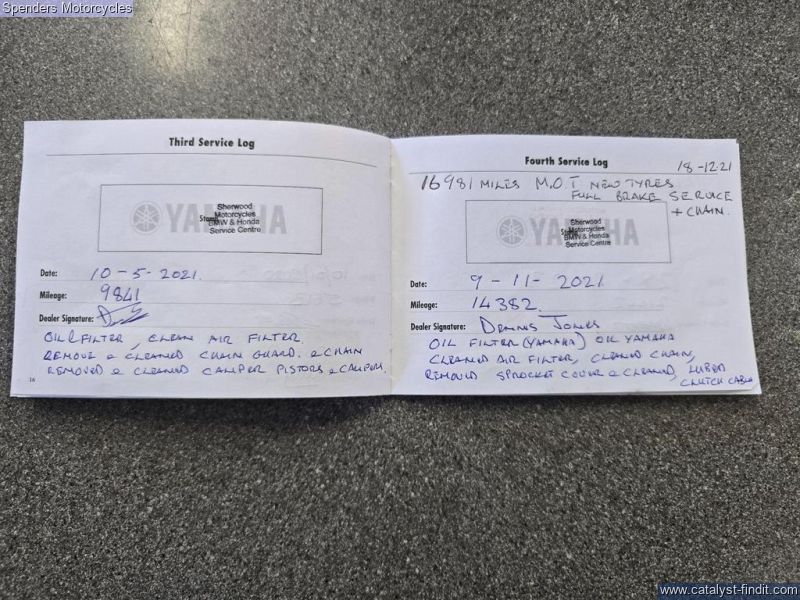 Spenders Motorcycles
Third Service Log
YAMAHA
Stamp
Sherwood
Motorcycles
BMW & Honda
Service Centre
Date: 10-5-2021.
Mileage: 9841
Dealer Signature:
OIL & FILTER, CLEAN AIR FILTER.
REMOVE & CLEANED CHAIN GUARD. & CHAIN
REMOVED & CLEANED CALIPER PISTONS & CALIPERS.
16
Fourth Service Log
18-12.21
16981 MILES M.O T NEW TYRES
FULL BRAKE SERVICE
+ CHAIN.
YAMAHA
Stamp
Sherwood
Motorcycles
BMW & Honda
Service Centre
Date: 9-11-2021
Mileage: 14382
Dealer Signature: Dennis Jones
OIL FILTER (YAMAHA) OIL YAMAHA
CLEANED AIR FILTER, CLEANED CHAIN,
REMOVED SPROCKET COVER & CLEANED, LUBED
CLUTCH CABLE
www.catalyst-findit.com